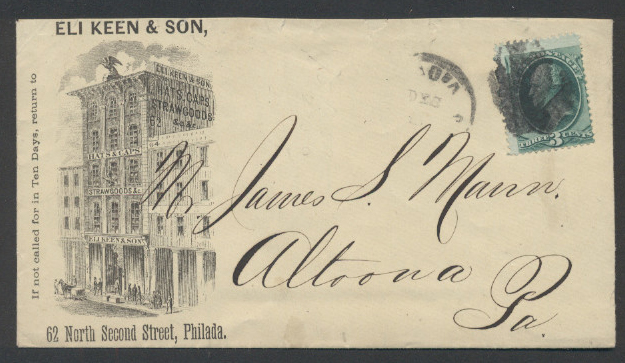 ELI KEEN & SON,
If not called for in Ten Days, return to
ELI KEEN & SON
HATS, CAPS,
STRAW GOODS
62
64
HATS & CAPS
STRAW GOODS &c.
ELI KEEN & SON
62 North Second Street, Philada.
THREE 3 CENTS
Mr James S. Mann.
Altoona
Pa.